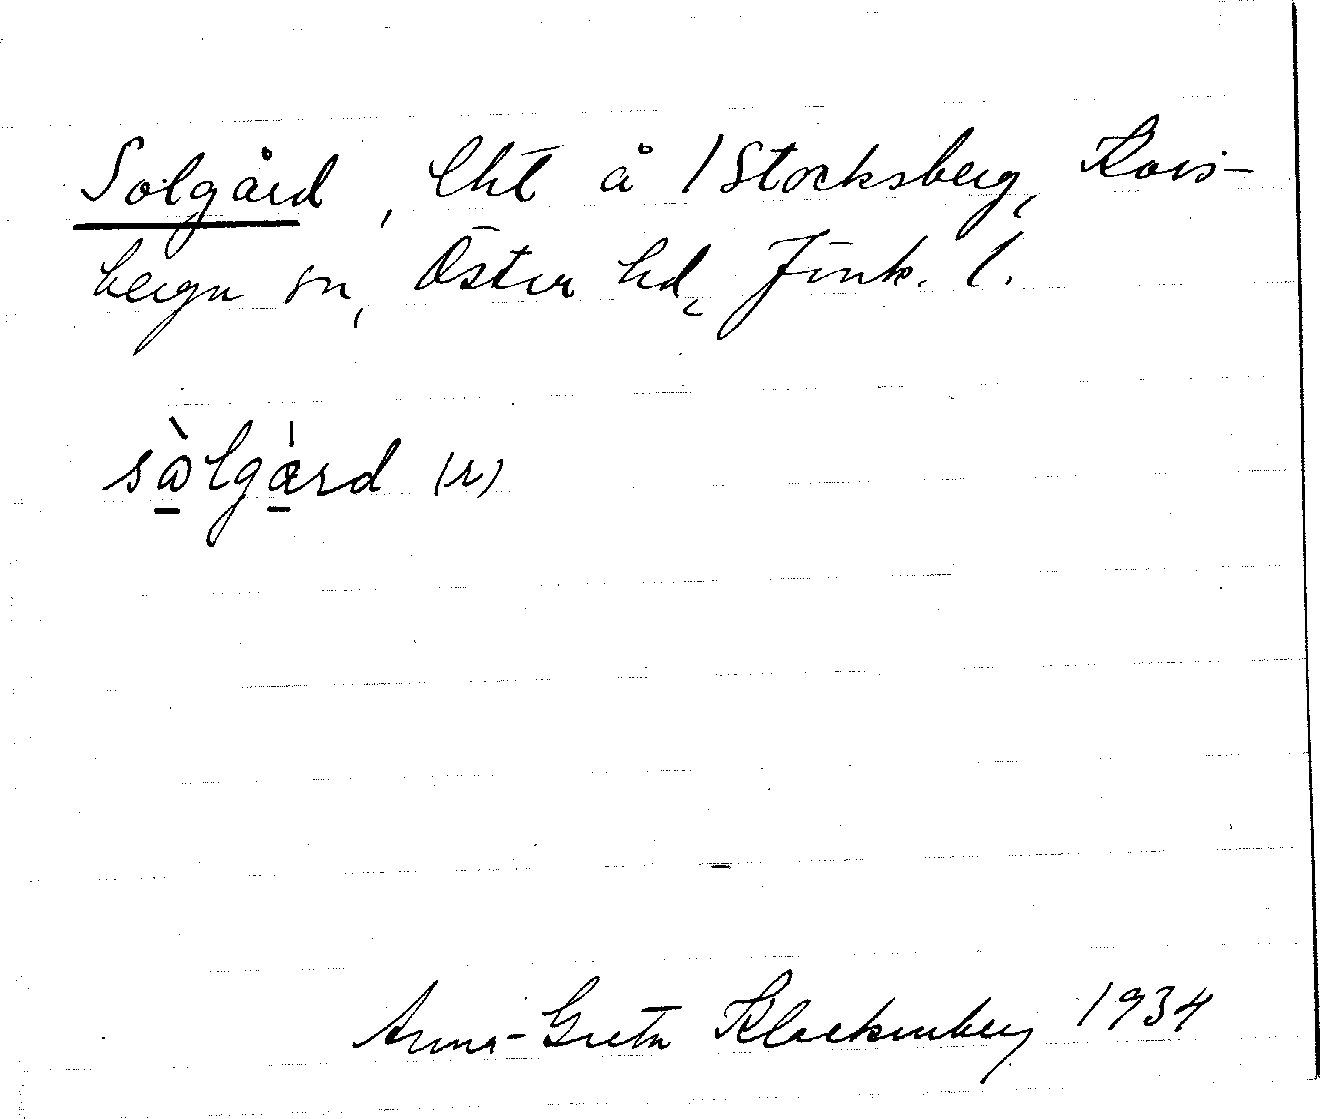 Solgård, lht å 1 Stocksberg, Kors-
berga sn, Östra hd, Jönk. l.
sòlgård (r)
Anna-Greta Klockenberg 1934